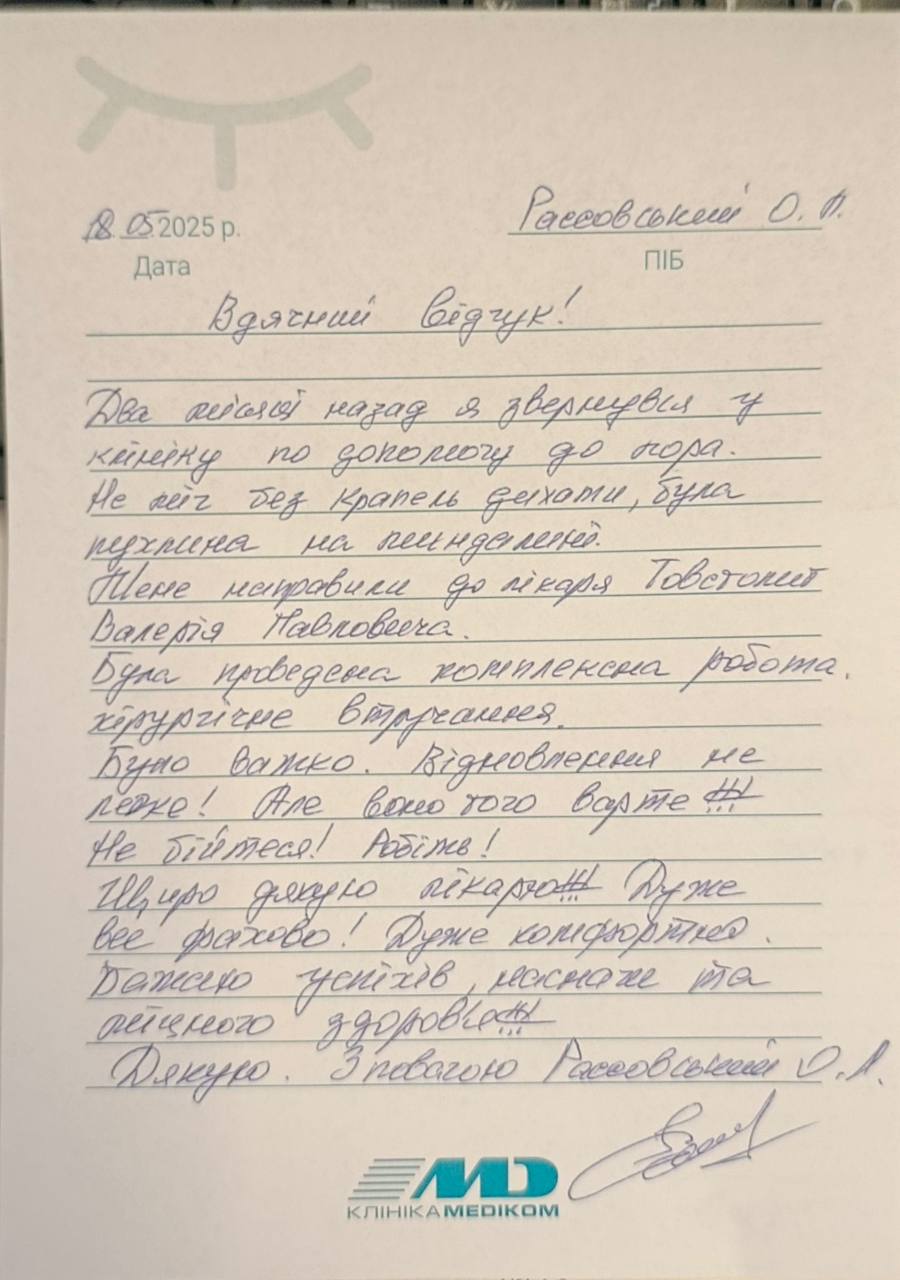 18.05.2025 р.
Рассовський О. Л.
Дата
ПІБ
Вдячний відгук!
Два місяці назад я звернувся у
клініку по допомогу до лора.
Не міг без крапель дихати, була
пухлина на миндалині.
Мене направили до лікаря Товстолит
Валерія Павловича.
Була проведена комплексна робота.
хірургічне втручання.
Було важко. Відновлення не
легке! Але воно того варте!!!
Не бійтеся! Робіть!
Щиро дякую лікарю!!! Дуже
все фахово! Дуже комфортно.
Бажаю успіхів, наснаги та
міцного здоров'я!!!
Дякую. З повагою Рассовський О. Л.
MD
КЛІНІКА MEDIКОМ